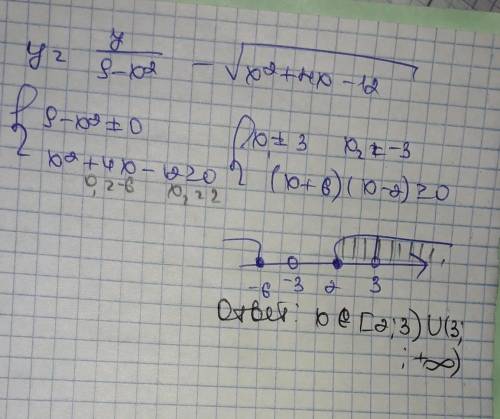 y = y/(9-x²) - √(x²+4x-12)
{ 9-x² ≠ 0
x²+4x-12≥0
x₁=-6 x₂=2
{ x₁≠3 x₂≠-3
(x+6)(x-2)≥0
-6 -3 2 3
Ответ: x∈[2;3)∪(3;
;+∞)